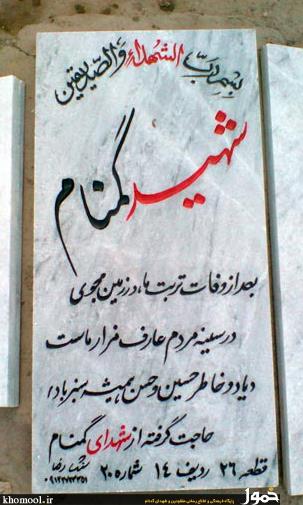 بسم ربّ الشهداء والصدیقین
شهید گمنام
بعد از وفات تربت ما، در زمین مجوی
در سینه مردم عارف مزار ماست
یاد و خاطر حسین و حسن همیشه سبز باد
حاجت گرفته از شهدای گمنام
قطعه ۲۶ ردیف ۱۴ شماره ۲۰
شهدی رضا
khomool.ir
خمول